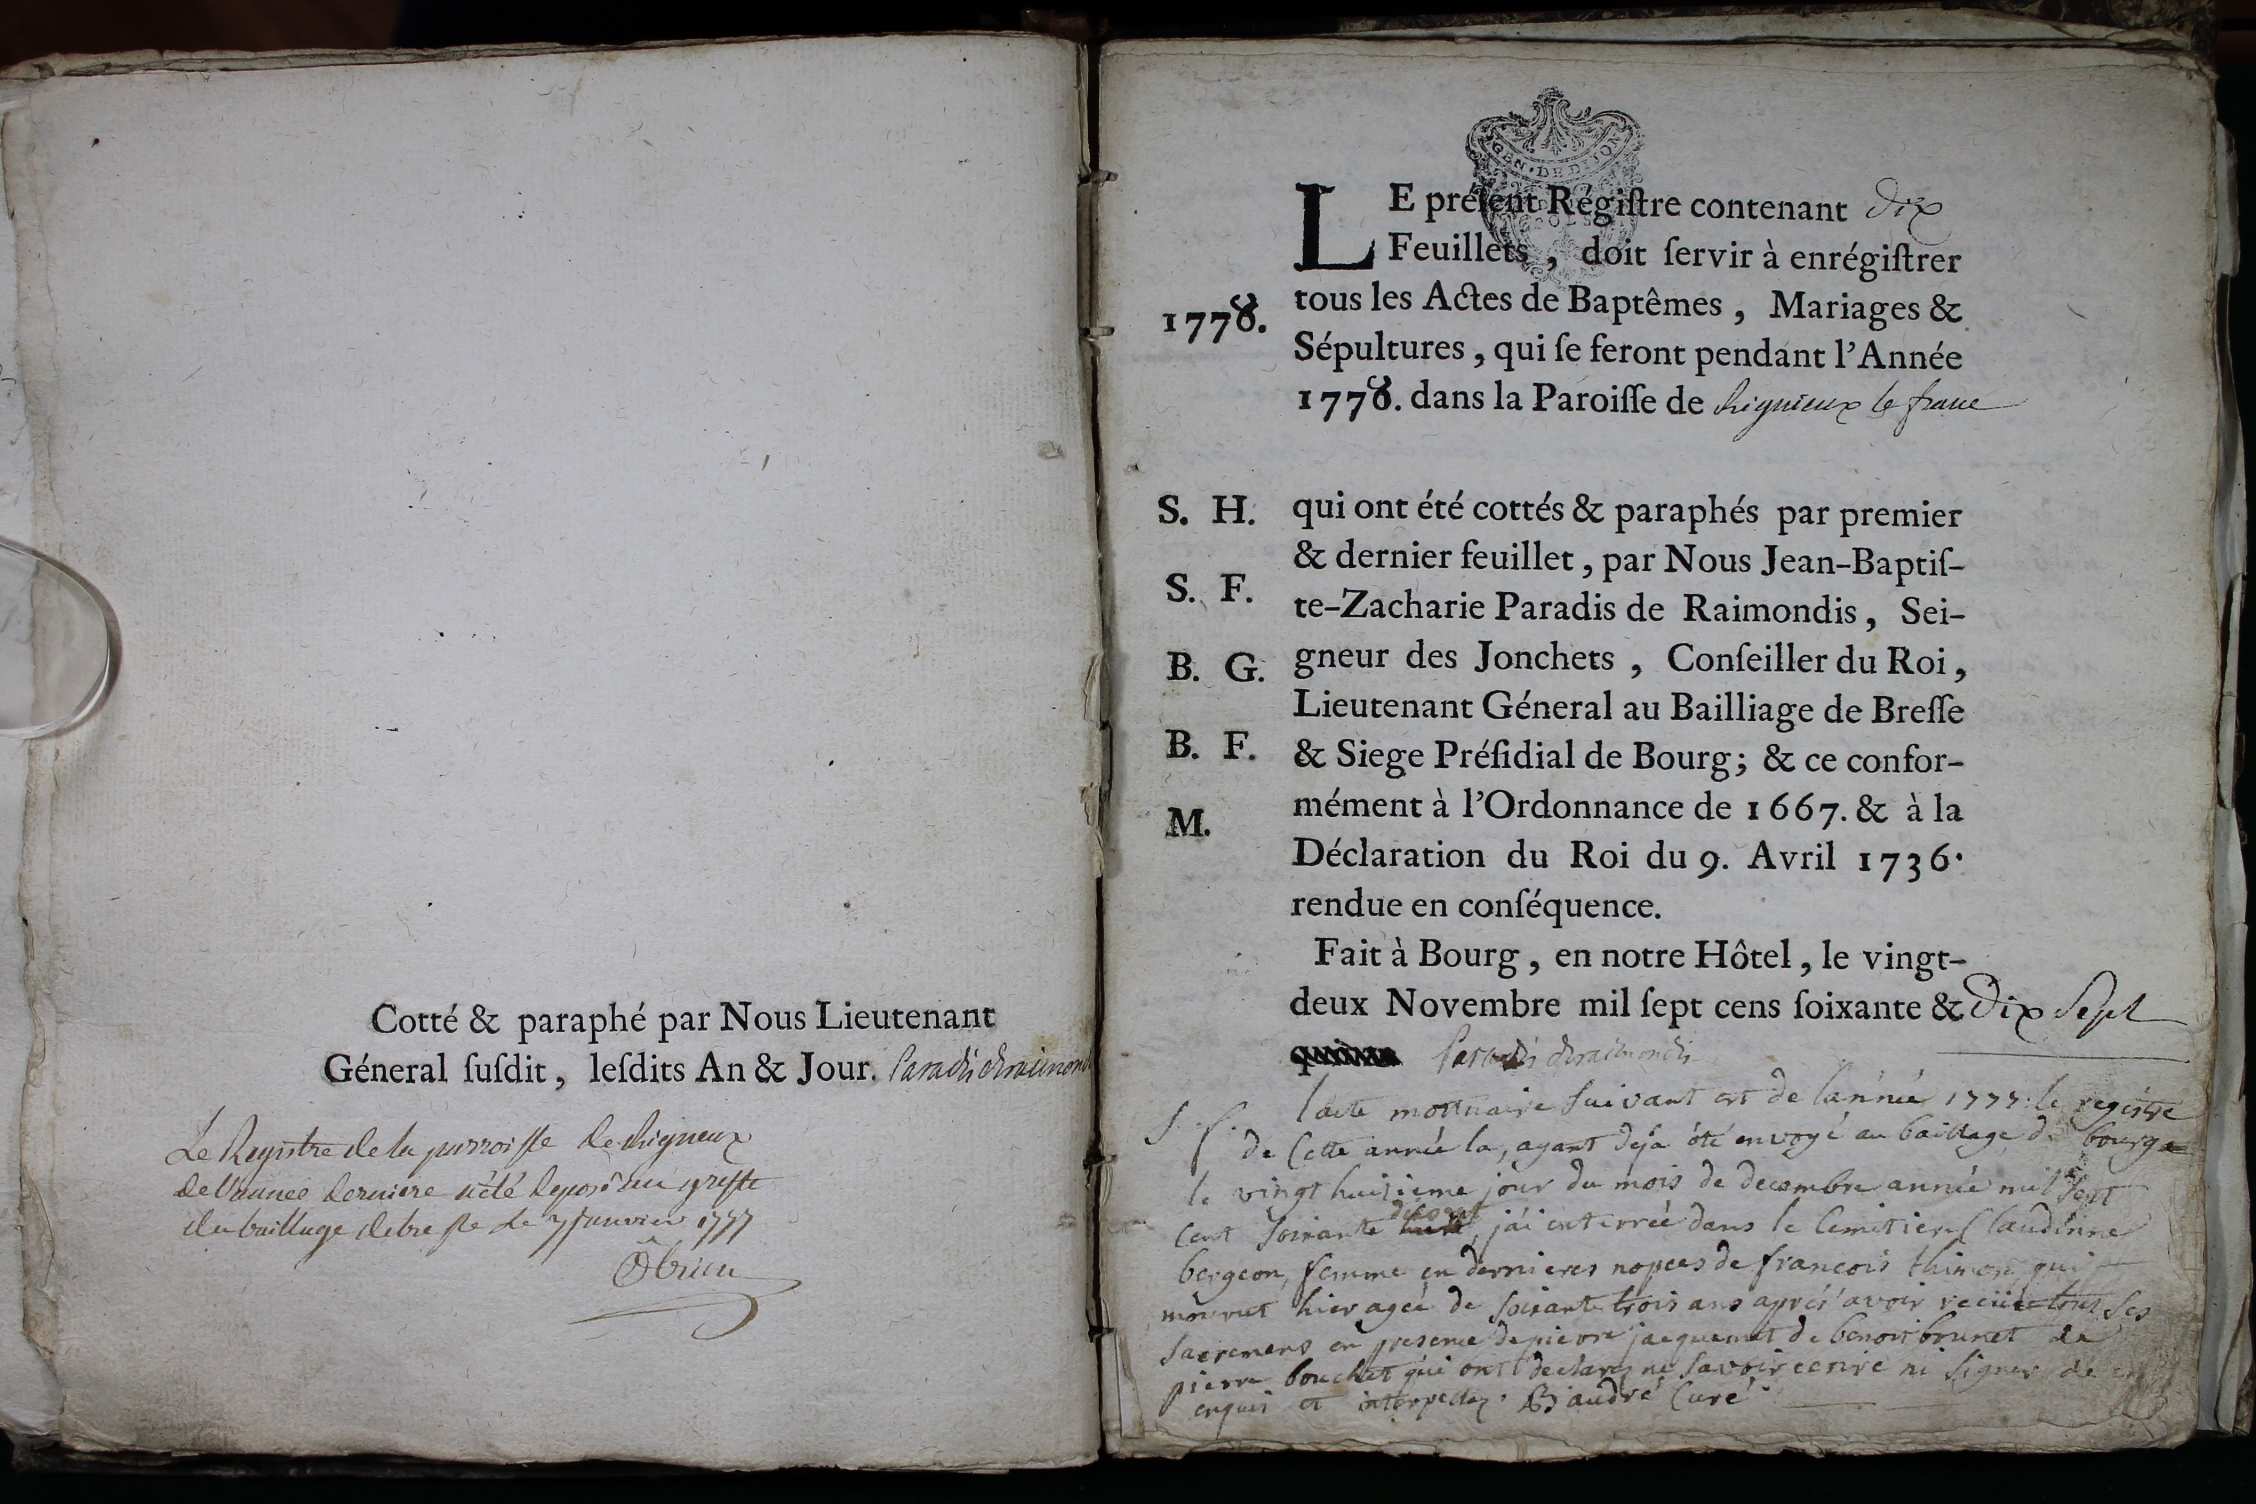 Cotté & paraphé par Nous Lieutenant
Géneral ſuſdit, leſdits An & Jour. Paradis deraimondis
Le Registre de la parroisse de Rigneux
de l'année derniere a été deposé au greffe
du bailliage de bresse le 7 janvier 1777
GEN · DE DIJON
LE préſent Régiſtre contenant dix
Feuillets, doit ſervir à enrégiſtrer
tous les Actes de Baptêmes, Mariages &
1778.
Sépultures, qui ſe feront pendant l'Année
1778. dans la Paroiſſe de Rignieux le franc
S. H. qui ont été cottés & paraphés par premier
& dernier feuillet, par Nous Jean-Baptiſ-
S. F. te-Zacharie Paradis de Raimondis, Sei-
B. G. gneur des Jonchets, Conſeiller du Roi,
Lieutenant Géneral au Bailliage de Breſſe
B. F. & Siege Préſidial de Bourg; & ce confor-
M. mément à l'Ordonnance de 1667. & à la
Déclaration du Roi du 9. Avril 1736.
rendue en conſéquence.
Fait à Bourg, en notre Hôtel, le vingt-
deux Novembre mil ſept cens ſoixante & Dix Sept
Paradis deraimondis
S. f. lacte mortuaire suivant est de lannée 1777. le registre
de Cette année la, ayant déja été envoyé au baillage de bourg
le vingt huitieme jour du mois de decembre année mil sept
cent soixante dixsept, j'ai enterrée dans le Cemitiere Claudinne
bergeon, femme en dernieres nopces de francois thimon qui
mourut hier ageé de soixante trois ans aprés avoir reciie tous ses
sacremens en presence de pierre jacquemet de benoit brunet de
pierre bouchet qui ont declarez ne savoir ecrire ni signer de ce
enquis et interpellez. Baudré Curé